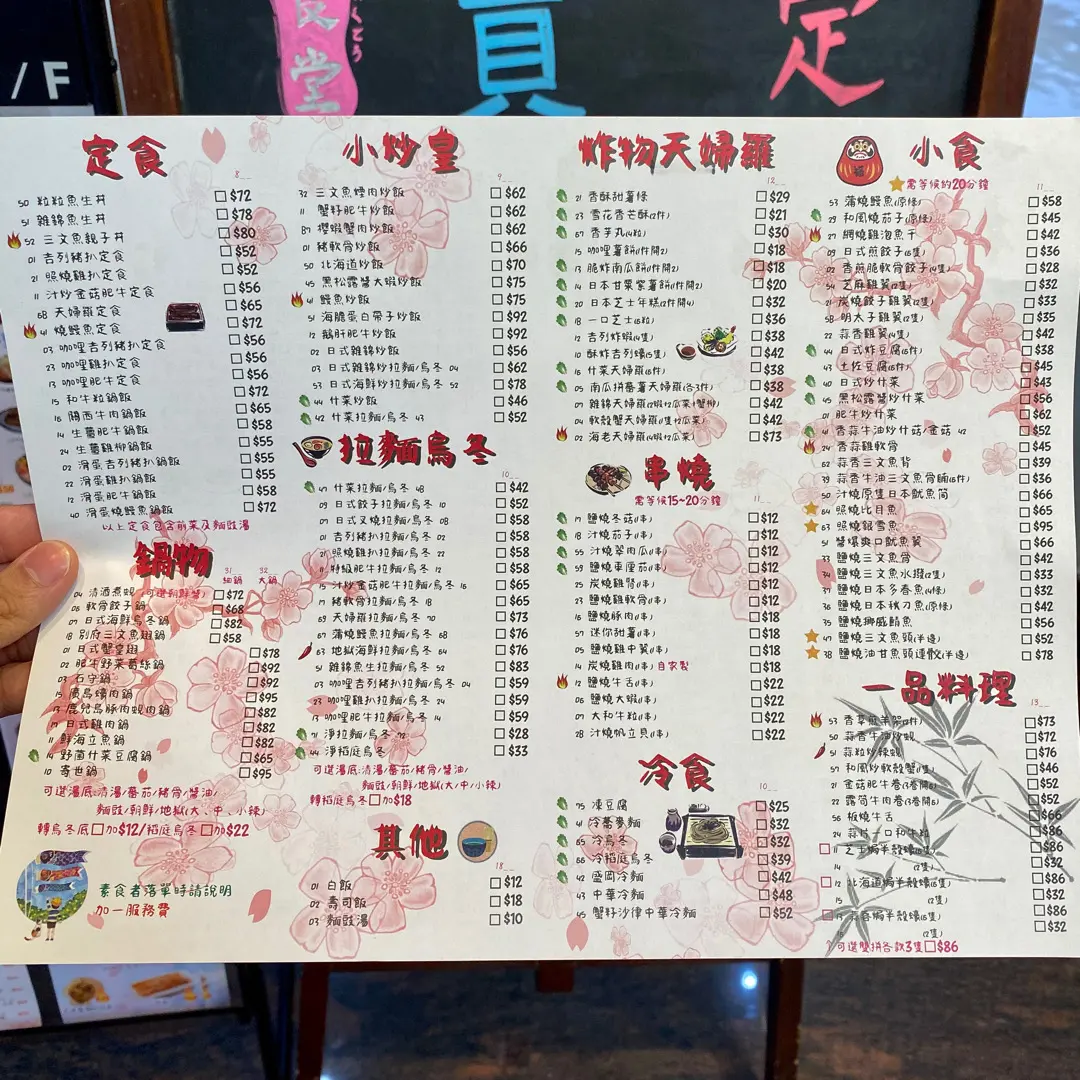 食堂
くどう
員
定
/F
定食
8__
50 粒粒魚生丼 $72
51 雜錦魚生丼 $78
52 三文魚親子丼 $80
01 吉列豬扒定食 $52
21 照燒雞扒定食 $52
11 汁炒金菇肥牛定食 $56
68 天婦羅定食 $65
41 燒鰻魚定食 $72
03 咖喱吉列豬扒定食 $56
23 咖喱雞扒定食 $56
13 咖喱肥牛定食 $56
15 和牛粒鍋飯 $72
16 關西牛肉鍋飯 $65
14 生薑肥牛鍋飯 $58
24 生薑雞柳鍋飯 $55
02 滑蛋吉列豬扒鍋飯 $55
22 滑蛋雞扒鍋飯 $55
12 滑蛋肥牛鍋飯 $58
40 滑蛋燒鰻魚鍋飯 $72
以上定食包含前菜及麵豉湯
鍋物
31__ 32__
細鍋 大鍋
04 清酒煮蜆(可選朝鮮醬) $72
06 軟骨餃子鍋 $68
07 日式海鮮烏冬鍋 $82
18 別府三文魚翅鍋 $58
01 日式蟹皇翅 $78
02 肥牛野菜葛絲鍋 $92
03 石守鍋 $92
15 廣島蠔肉鍋 $95
13 鹿兒島豚肉蜆肉鍋 $82
17 日式雞肉鍋 $82
11 鮮海立魚鍋 $82
14 野菌什菜豆腐鍋 $65
10 寄世鍋 $95
可選湯底:清湯/番茄/豬骨/醬油/
麵豉/朝鮮/地獄(大、中、小辣)
轉烏冬底加$12/稻庭烏冬加$22
素食者落單時請說明
加一服務費
小炒皇
9__
32 三文魚煙肉炒飯 $62
11 蟹籽肥牛炒飯 $62
87 櫻蝦蟹肉炒飯 $62
01 豬軟骨炒飯 $66
50 北海道炒飯 $70
45 黑松露醬大蝦炒飯 $75
41 鰻魚炒飯 $75
51 海膽蛋白帶子炒飯 $92
12 鵝肝肥牛炒飯 $92
02 日式雜錦炒飯 $56
03 日式雜錦炒拉麵/烏冬 04 $62
53 日式海鮮炒拉麵/烏冬 52 $78
44 什菜炒飯 $46
42 什菜拉麵/烏冬 43 $52
拉麵烏冬
10__
47 什菜拉麵/烏冬 48 $42
09 日式餃子拉麵/烏冬 10 $52
07 日式叉燒拉麵/烏冬 08 $58
01 吉列豬扒拉麵/烏冬 02 $58
21 照燒雞扒拉麵/烏冬 22 $58
11 特級肥牛拉麵/烏冬 12 $58
15 汁炒金菇肥牛拉麵/烏冬 16 $65
17 豬軟骨拉麵/烏冬 18 $65
69 天婦羅拉麵/烏冬 70 $73
67 蒲燒鰻魚拉麵/烏冬 68 $76
63 地獄海鮮拉麵/烏冬 64 $76
51 雜錦魚生拉麵/烏冬 52 $83
03 咖喱吉列豬扒拉麵/烏冬 04 $59
23 咖喱雞扒拉麵/烏冬 24 $59
13 咖喱肥牛拉麵/烏冬 14 $59
71 淨拉麵/烏冬 72 $28
44 淨稻庭烏冬 $33
可選湯底:清湯/番茄/豬骨/醬油/
麵豉/朝鮮/地獄(大/中/小辣)
轉稻庭烏冬加$18
其他
18__
01 白飯 $12
02 壽司飯 $18
03 麵豉湯 $10
炸物天婦羅
12__
21 香酥甜薯條 $29
23 雪花香芒酥(2件) $21
67 香芋丸(4粒) $30
15 咖喱薯餅(1件開2) $18
13 脆炸南瓜餅(1件開2) $18
14 日本甘栗蜜薯餅(1件開2) $20
20 日本芝士年糕(2件開4) $32
18 一口芝士(6粒) $36
12 吉列炸蝦(4隻) $38
10 酥炸吉列蠔(5隻) $42
16 什菜天婦羅(6件) $38
05 南瓜拼番薯天婦羅(各3件) $38
07 雜錦天婦羅(2蝦+2瓜菜+1蟹柳) $42
04 軟殼蟹天婦羅(1隻+2瓜菜) $42
02 海老天婦羅(4蝦+2瓜菜) $73
串燒
需等候15~20分鐘
11__
17 鹽燒冬菇(1串) $12
18 汁燒茄子(1串) $12
55 汁燒翠肉瓜(1串) $12
59 鹽燒車厘茄(1串) $12
25 炭燒雞腎(1串) $12
23 鹽燒雞軟骨(1串) $18
16 鹽燒豚肉(1串) $18
57 迷你甜薯(1串) $18
05 鹽燒雞中翼(1串) $18
14 炭燒雞肉(1串)自家製 $18
12 鹽燒牛舌(1串) $22
06 鹽燒大蝦(1串) $22
07 大和牛粒(1串) $22
28 汁燒帆立貝(1串) $22
冷食
10__
75 凍豆腐 $25
41 冷蕎麥麵 $32
65 冷烏冬 $32
66 冷稻庭烏冬 $39
42 盛岡冷麵 $42
43 中華冷麵 $42
45 蟹籽沙律中華冷麵 $52
小食
需等候約20分鐘
11__
53 蒲燒鰻魚(原條) $58
29 和風燒茄子(原條) $45
27 網燒雞泡魚干 $42
09 日式煎餃子(6隻) $36
02 香煎脆軟骨餃子(4隻) $28
54 芝麻雞翼(2隻) $33
21 炭燒餃子雞翼(2隻) $33
58 明太子雞翼(2隻) $35
22 蒜香雞翼(4隻) $42
44 日式炸豆腐(6件) $38
43 土佐豆腐(6件) $45
40 日式炒什菜 $43
45 黑松露醬炒什菜 $56
01 肥牛炒什菜
41 香蒜牛油炒什菇/金菇 42 $52
24 香蒜雞軟骨 $45
62 蒜香三文魚背 $39
39 蒜香牛油三文魚骨腩(6件) $36
50 汁燒原隻日本魷魚筒 $66
64 照燒比目魚 $65
63 照燒銀雪魚 $95
51 醬爆爽口魷魚翼 $66
33 鹽燒三文魚骨 $42
34 鹽燒三文魚水撥(2隻) $33
37 鹽燒日本多春魚(4條) $32
36 鹽燒日本秋刀魚(原條) $42
35 鹽燒挪威鯖魚 $56
47 鹽燒三文魚頭(半邊) $52
38 鹽燒油甘魚頭連鮫(半邊) $78
一品料理
13__
53 香草羊架(2件) $73
50 蒜香牛油炒蜆 $72
51 蒜粒炒辣蜆 $76
57 和風炒軟殼蟹(1隻) $46
21 金菇肥牛卷(3卷開6) $52
22 露筍牛肉卷(3卷開6) $52
56 板燒牛舌 $66
24 蒜片一口和牛粒 $86
11 芝士焗半殼蠔(6隻) $86
14 (2隻) $32
12 北海道焗半殼蠔(6隻) $86
15 (2隻) $32
13 焗半殼蠔(6隻) $86
16 (2隻) $32
↑可選雙拼各款3隻$86